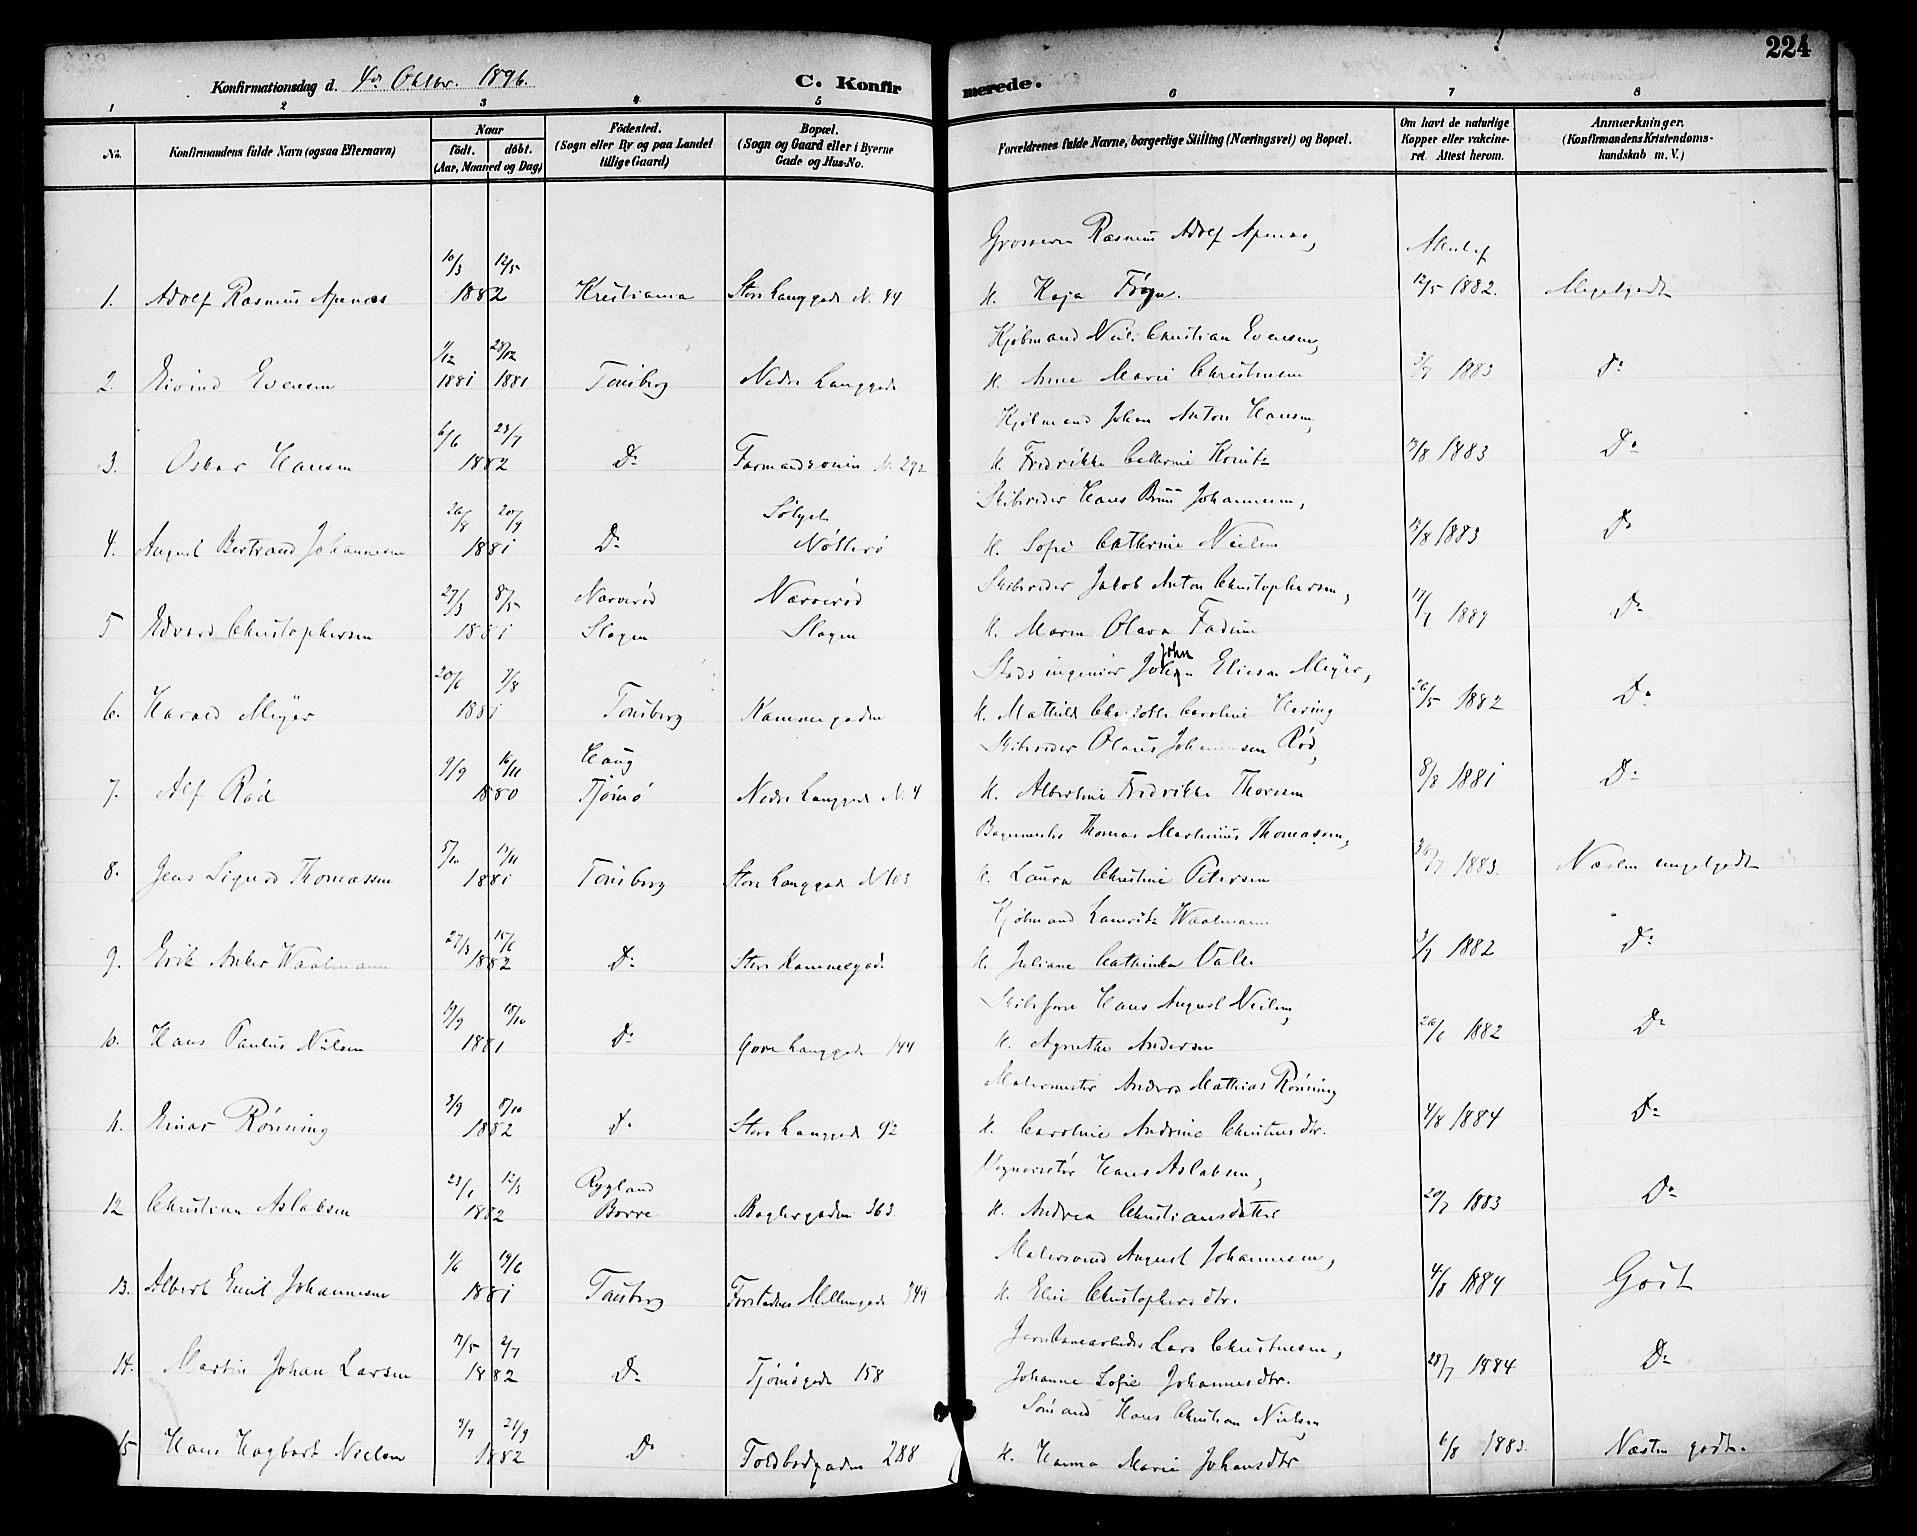 224
Konfirmationsdag d. 4de Oktbr. 1896.
C. Konfirmerede.
1 2 3 4 5 6 7 8
No.
Konfirmandens fulde Navn (ogsaa Efternavn)
Naar
födt. döbt.
(Aar, Maaned og Dag)
Födested.
(Sogn eller By og paa Landet
tillige Gaard)
Bopæl.
(Sogn og Gaard eller i Byerne
Gade og Hus-No.
Forældrenes fulde Navne, borgerlige Stilling (Næringsvei) og Bopæl.
Om havt de naturlige
Kopper eller vakcine-
ret. Attest herom.
Anmærkninger.
(Konfirmandens Kristendoms-
kundskab m. V.)
Grosserer Rasmus Adolf Apenæs,
10/3 12/5
1. Adolf Rasmus Apenæs 1882 Kristiania Store Langgade N. 44 H. Kaja Trøgn. 12/5 1882. Megetgodt
Kjøbmand Niels Christian Evensen,
1/12 28/12
2. Eivind Evensen 1881 1881 Tønsberg Nedre Langgade H. Anne Marie Christensen 3/7 1883 Do
Kjøbmand Johan Anton Hansen,
6/6 23/7
3. Oskar Hansen 1882 Do Farmandsveien N. 292 H. Fredrikke Cathrine 13/8 1883 Do
Skibsreder Hans Bruu Johannesen,
26/8 20/9 Solgt
4. August Bertrand Johannesen 1881 Do Nøtterø H. Sofie Cathrine Nielsen 13/8 1883 Do
Skibsreder Jakob Anton Christophersen,
27/3 8/5 Narverød Narverød
5 Edvard Christophersen 1881 Slagen Slagen H. Maren Olava Fadum 17/7 1889 Do
Stadsingeniør John Elieson Meyer,
20/6 7/8
6. Harald Meyer 1881 Tønsberg Kammegaden H. Mathilde Charlotte Caroline Hering 26/5 1882 Do
Skibsreder Olaus Johannesen Rød,
9/9 16/11 Haug
7. Alf Rød 1880 Tjømø Nedre Langgade N. 4 H. Albertine Fredrikke Thoresen 8/8 1881 Do
Bagermester Thomas Martinius Thomassen,
5/10 13/11
8. Jens Sigurd Thomassen 1881 Tønsberg Store Langgade N 103 H. Laura Christine Petersen 30/7 1883. Næsten megetgodt
Kjøbmand Lauritz Waalmann
27/3 15/6
9. Erik Anker Waalmann 1882 Do Store Kammegade H. Juliane Cathinka 3/7 1882 Do
Skibsfører Hans August Nielsen,
19/9 18/10
10. Hans Paulus Nilsen 1881 Do Øvre Langgade 144 H. Agnethe Andersen 26/6 1882 Do
Malermester Anders Mathias Rønning
3/9 8/10
11. Einar Rønning 1882 Do Store Langgade 92 H. Caroline Andrine Christensdtr. 4/8 1884 Do
Hans Aslaksen,
23/1 12/3 Rygland
12 Christian Aslaksen 1882 Borre Baglergaden 363. H. Andrea Christiansdatter 20/7 1883 Do
Malersvend August Johannesen,
1/6 19/6
13. Albert Emil Johannesen 1881 Tønsberg Møllegade 349 H. Elise Christophersdtr. 4/8 1884 Godt
Jernbanearbeider Lars Christensen,
7/5 2/7
14. Martin Johan Larsen 1882 Do Tjømøgade 158 Johanne Sofie Johannesdtr. 28/7 1884 Do
Sømand Hans Christian Nielsen
3/7 21/9
15 Hans Hagbart Nielsen 1882 Do Toldbodgaden 288 H. Hanna Marie Johansdtr 6/8 1883. Næsten godt.